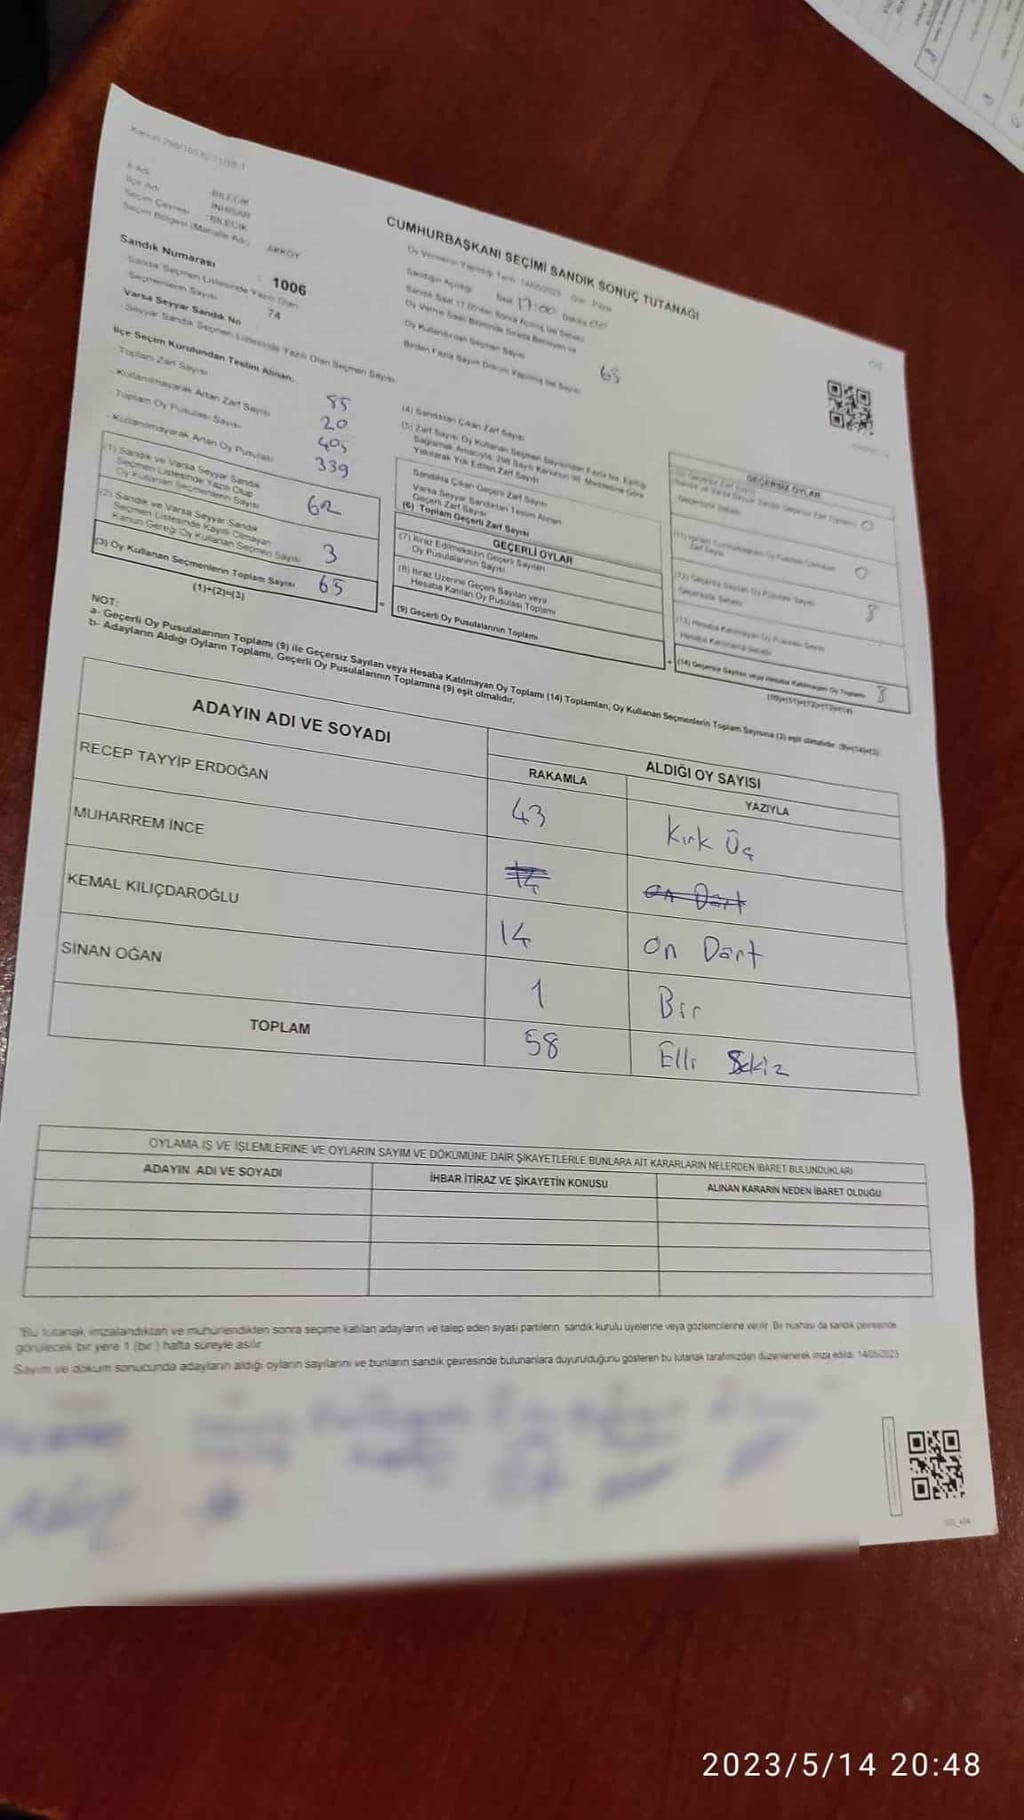 İl Adı : BİLECİK
İlçe Adı : İNHİSAR
Seçim Çevresi : BİLECİK
Seçim Bölgesi (Mahalle Adı) AKKÖY
Sandık Numarası : 1006
Sandık Seçmen Listesinde Yazılı Olan
Seçmenlerin Sayısı : 74
Varsa Seyyar Sandık No
Seyyar Sandık Seçmen Listesinde Yazılı Olan Seçmen Sayısı
İlçe Seçim Kurulundan Teslim Alınan;
Toplam Zarf Sayısı 85
Kullanılmayarak Artan Zarf Sayısı 20
Toplam Oy Pusulası Sayısı 405
Kullanılmayarak Artan Oy Pusulası 339
(1) Sandık ve Varsa Seyyar Sandık
Seçmen Listesinde Yazılı Olup
Oy Kullanan Seçmenlerin Sayısı 62
(2) Sandık ve Varsa Seyyar Sandık
Seçmen Listesinde Kaydı Olmayan
Kanun Gereği Oy Kullanan Seçmen Sayısı 3
(3) Oy Kullanan Seçmenlerin Toplam Sayısı 65
(1)+(2)=(3)
CUMHURBAŞKANI SEÇİMİ SANDIK SONUÇ TUTANAĞI
Oy Vermenin Yapıldığı Tarih 14/05/2023 Gün Pazar
Sandığın Açıldığı Saat 17:00
Oy Kullandırılan Seçmen Sayısı
65
(4) Sandıktan Çıkan Zarf Sayısı
(5) Zarf Sayısı Oy Kullanan Seçmen Sayısından Fazla İse, Eşitliği
Sağlamak Amacıyla, 298 Sayılı Kanunun 98. Maddesine Göre
Yakılarak Yok Edilen Zarf Sayısı
Sandıkta Çıkan Geçerli Zarf Sayısı
Varsa Seyyar Sandıktan Teslim Alınan
Geçerli Zarf Sayısı
(6) Toplam Geçerli Zarf Sayısı
GEÇERLİ OYLAR
(7) İtiraz Edilmeksizin Geçerli Sayılan
Oy Pusulalarının Sayısı
(8) İtiraz Üzerine Geçerli Sayılan veya
Hesaba Katılan Oy Pusulası Toplamı
(9) Geçerli Oy Pusulalarının Toplamı
GEÇERSİZ OYLAR
0
0
8
(14) Geçersiz Sayılan veya Hesaba Katılmayan Oy Toplamı 8
NOT:
a- Geçerli Oy Pusulalarının Toplamı (9) ile Geçersiz Sayılan veya Hesaba Katılmayan Oy Toplamı (14) Toplamları, Oy Kullanan Seçmenlerin Toplam Sayısına (3) eşit olmalıdır. (9)+(14)=(3)
b- Adayların Aldığı Oyların Toplamı, Geçerli Oy Pusulalarının Toplamına (9) eşit olmalıdır.
ADAYIN ADI VE SOYADI ALDIĞI OY SAYISI
RAKAMLA YAZIYLA
RECEP TAYYİP ERDOĞAN 43 Kırk Üç
MUHARREM İNCE 14 On Dört
KEMAL KILIÇDAROĞLU 14 On Dört
SİNAN OĞAN 1 Bir
TOPLAM 58 Elli Sekiz
OYLAMA İŞ VE İŞLEMLERİNE VE OYLARIN SAYIM VE DÖKÜMÜNE DAİR ŞİKAYETLERLE BUNLARA AİT KARARLARIN NELERDEN İBARET BULUNDUKLARI
ADAYIN ADI VE SOYADI İHBAR İTİRAZ VE ŞİKAYETİN KONUSU ALINAN KARARIN NEDEN İBARET OLDUĞU
"Bu tutanak imzalandıktan ve mühürlendikten sonra seçime katılan adayların ve talep eden siyasi partilerin, sandık kurulu üyelerine veya gözlemcilerine verilir. Bir nüshası da sandık çevresinde
görülecek bir yere 1 (bir) hafta süreyle asılır
Sayım ve döküm sonucunda adayların aldığı oyların sayılarını ve bunların sandık çevresinde bulunanlara duyurulduğunu gösteren bu tutanak tarafımızdan düzenlenerek imza edildi. 14/05/2023
2023/5/14 20:48